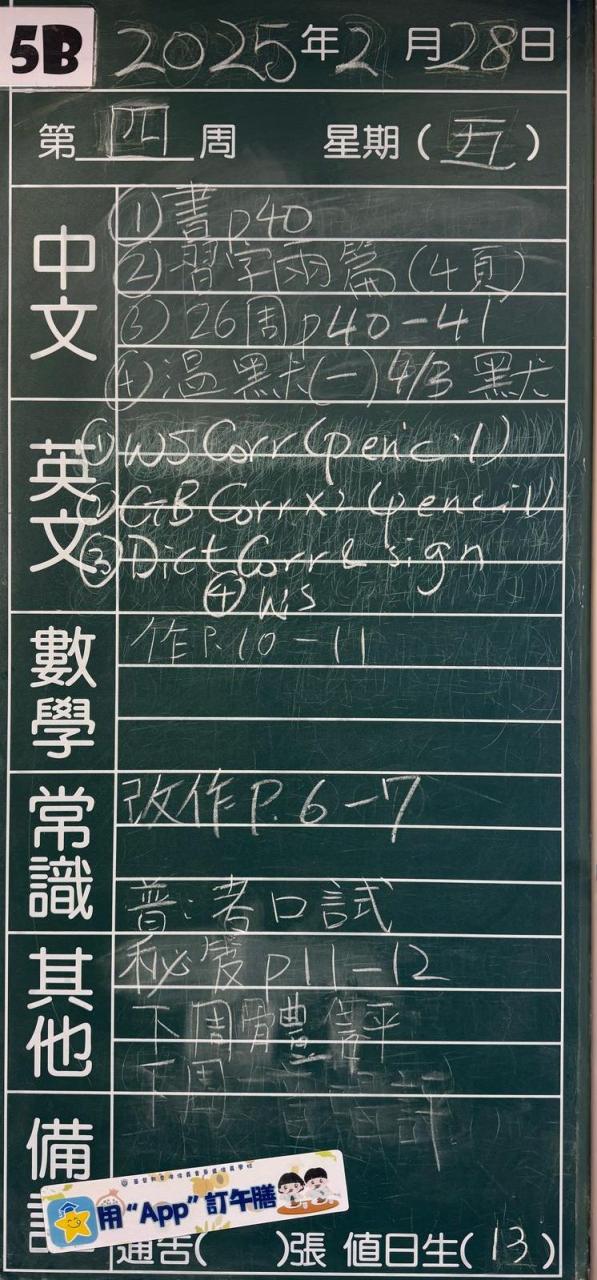 5B 2025年2月28日
第四周 星期(五)
中文
①書p40
②習字兩篇(4頁)
③26周p40-41
④溫默(一)4/3默
英文
①WS Corr(pencil)
②GB Corrx2 (pencil)
③Dict Corr & sign
④WS
數學
作P.10-11
常識
改作P.6-7
普:考口試
其他
p11-12
下周體
下周
備
用“App”訂午膳
通告( )張 值日生(13)